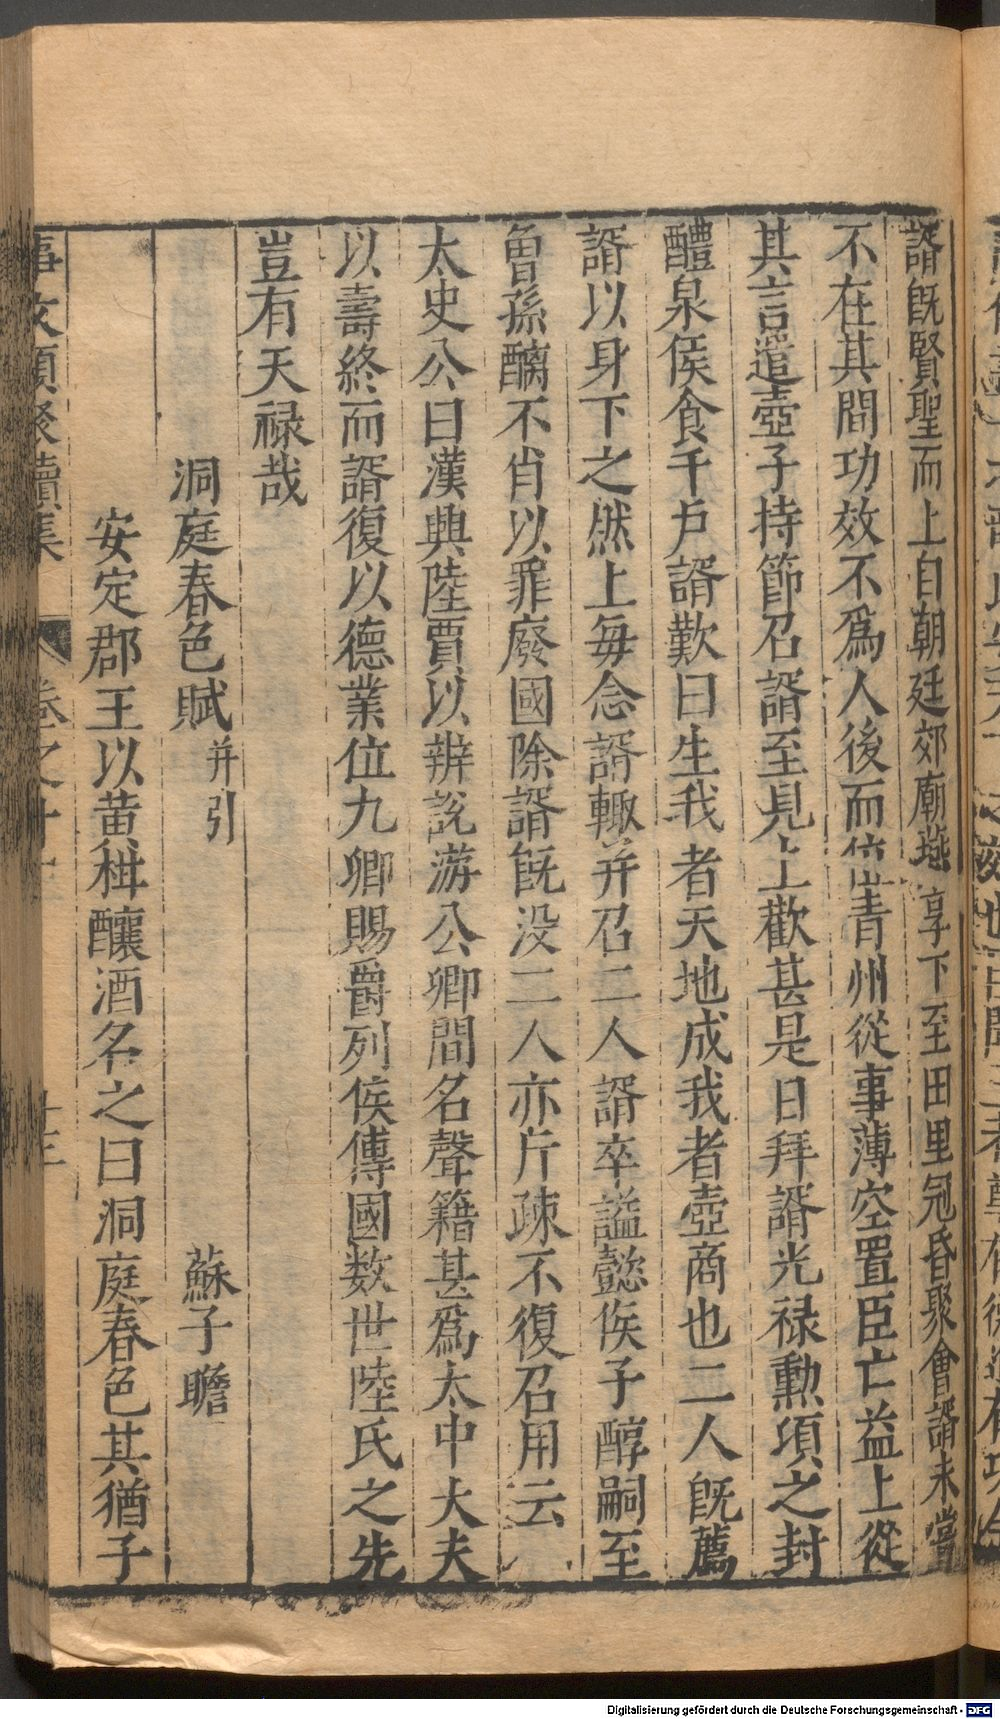 諝旣賢聖而上自朝廷郊廟燕享下至田里冠昏聚會諝未嘗
不在其間功效不爲人後而位青州從事薄空置臣亡益上從
其言遣壺子持節召諝至見上歡甚是日拜諝光禄勲項之封
醴泉侯食千户諝歎曰生我者天地成我者壺商也二人旣薦
諝以身下之然上每念諝輙并召二人諝卒謚懿侯子醇嗣至
曾孫醨不肖以罪廢國除諝旣没二人亦斥疎不復召用云
太史公曰漢興陸賈以辨說游公卿間名聲籍甚爲太中大夫
以壽終而諝復以德業位九卿賜爵列侯傳國数世陸氏之先
豈有天禄哉
洞庭春色賦并引 蘇子瞻
安定郡王以黄柑釀酒名之曰洞庭春色其猶子
事文類聚續集 卷之十 十三
Digitalisierung gefördert durch die Deutsche Forschungsgemeinschaft - DFG